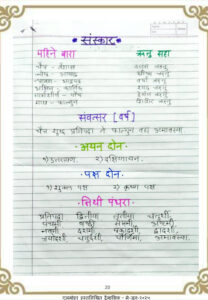 संस्कार
महिने बारा ऋतु सहा
चैत्र - वैशाख वसंत ऋतु
ज्येष्ठ - आषाढ ग्रीष्म ऋतु
श्रावण - भाद्रपद वर्षा ऋतु
आश्विन - कार्तिक शरद ऋतु
मार्गशीर्ष - पौष हेमंत ऋतु
माघ - फाल्गुन शिशिर ऋतु
संवत्सर [वर्ष]
चैत्र शुद्ध प्रतिपदा ते फाल्गुन वद्य अमावस्या.
अयन दोन.
१) उत्तरायण. २) दक्षिणायन.
पक्ष दोन.
१) शुक्ल पक्ष २) कृष्ण पक्ष
तिथी पंधरा
प्रतिपदा द्वितीया तृतीया चतुर्थी,
पंचमी षष्ठी सप्तमी, अष्टमी
नवमी दशमी एकादशी, द्वादशी,
त्रयोदशी चतुर्दशी, पौर्णिमा, अमावास्या.
23
हस्तलिखित त्रैमासिक - मे जून - २०२५